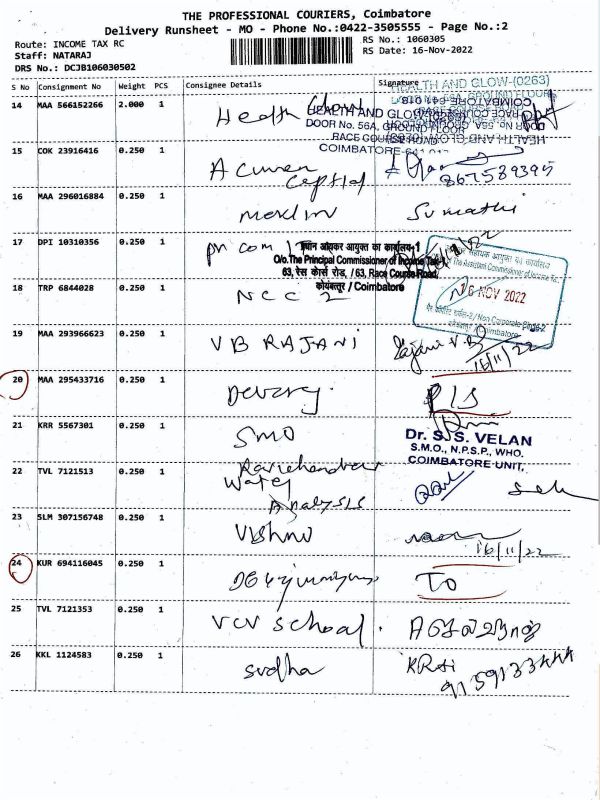 THE PROFESSIONAL COURIERS, Coimbatore
Delivery Runsheet - MO - Phone No.:0422-3505555 - Page No.:2
Route: INCOME TAX RC
RS No.: 1060305
Staff: NATARAJ
RS Date: 16-Nov-2022
DRS No.: DCJB106030502
S No Consignment No Weight PCS Consignee Details Signature
14 MAA 566152266 2.000 1 Health
HEALTH AND GLOW-(0263)
DOOR No. 56A, GROUND FLOOR
RACE COURSE ROAD
COIMBATORE-641 018
15 COK 23916416 0.250 1 Acumen
Capital
867589395
16 MAA 296016884 0.250 1 Sumathi
17 DPI 10310356 0.250 1 pr com
प्रधान आयकर आयुक्त का कार्यालय-1
O/o.The Principal Commissioner of Income Tax-
63, रेस कोर्स रोड, / 63, Race Course Road,
कोयंबत्तूर / Coimbatore
The Assistant Commissioner of Income Tax,
16 NOV 2022
Non Corporate Circle-2
Coimbatore
18 TRP 6844028 0.250 1 NCC 2
19 MAA 293966623 0.250 1 VB RAJANI Rajani V.B
16/11/22
20 MAA 295433716 0.250 1 Devaraj PIS
21 KRR 5567301 0.250 1 SMO
Dr. S. S. VELAN
S.M.O., N.P.S.P., WHO.
COIMBATORE UNIT,
22 TVL 7121513 0.250 1 Ravichandran
Water
Analysis
23 SLM 307156748 0.250 1 Vishnu
16/11/22
24 KUR 694116045 0.250 1 TO
25 TVL 7121353 0.250 1 VCV School.
26 KKL 1124583 0.250 1 Sudha
9159133444